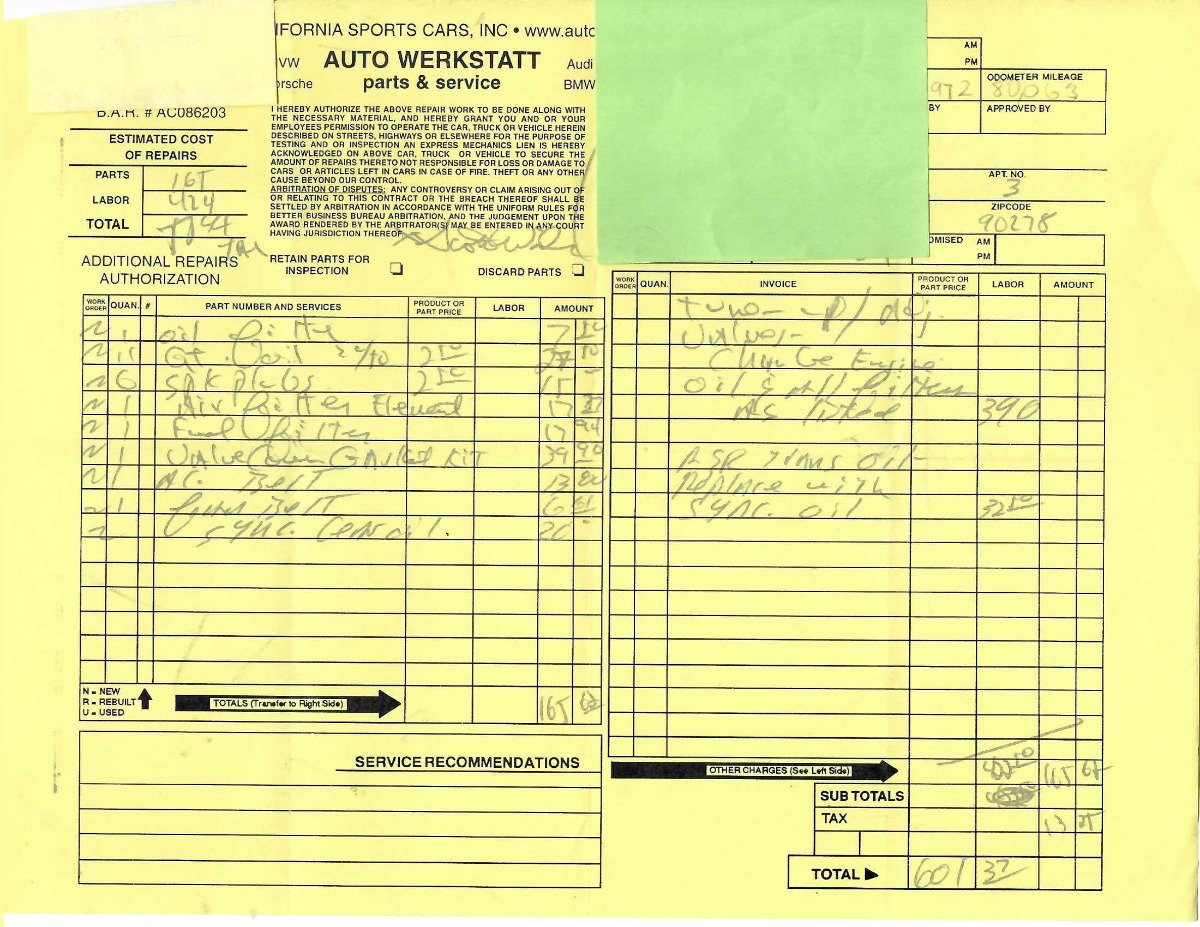 IFORNIA SPORTS CARS, INC • www.auto
VW AUTO WERKSTATT Audi
orsche parts & service BMW
B.A.R. # AC086203
ESTIMATED COST
OF REPAIRS
PARTS 165
LABOR 424
TOTAL
TAX
I HEREBY AUTHORIZE THE ABOVE REPAIR WORK TO BE DONE ALONG WITH
THE NECESSARY MATERIAL, AND HEREBY GRANT YOU AND OR YOUR
EMPLOYEES PERMISSION TO OPERATE THE CAR, TRUCK OR VEHICLE HEREIN
DESCRIBED ON STREETS, HIGHWAYS OR ELSEWHERE FOR THE PURPOSE OF
TESTING AND OR INSPECTION AN EXPRESS MECHANICS LIEN IS HEREBY
ACKNOWLEDGED ON ABOVE CAR, TRUCK OR VEHICLE TO SECURE THE
AMOUNT OF REPAIRS THERETO NOT RESPONSIBLE FOR LOSS OR DAMAGE TO
CARS OR ARTICLES LEFT IN CARS IN CASE OF FIRE. THEFT OR ANY OTHER
CAUSE BEYOND OUR CONTROL.
ARBITRATION OF DISPUTES: ANY CONTROVERSY OR CLAIM ARISING OUT OF
OR RELATING TO THIS CONTRACT OR THE BREACH THEREOF SHALL BE
SETTLED BY ARBITRATION IN ACCORDANCE WITH THE UNIFORM RULES FOR
BETTER BUSINESS BUREAU ARBITRATION, AND THE JUDGEMENT UPON THE
AWARD RENDERED BY THE ARBITRATOR(S) MAY BE ENTERED IN ANY COURT
HAVING JURISDICTION THEREOF.
AM
PM
972 ODOMETER MILEAGE
80063
BY APPROVED BY
APT. NO.
3
ZIPCODE
90278
OMISED AM
PM
ADDITIONAL REPAIRS
AUTHORIZATION
RETAIN PARTS FOR
INSPECTION
DISCARD PARTS
WORK ORDER QUAN. # PART NUMBER AND SERVICES PRODUCT OR PART PRICE LABOR AMOUNT
N 1 oil filter 7
N oil 20/50 2 50
N 6 SPK Plugs 2 50 15
N 1 Air filter Element 17
N 1 Fuel filter 17 94
N 1 Valve Cover Gasket KIT 39 90
N 1 AC. BELT 13 80
1 BELT 6
sync. oil. 20
N - NEW
R - REBUILT
U - USED
TOTALS (Transfer to Right Side) 165
SERVICE RECOMMENDATIONS
WORK ORDER QUAN. INVOICE PRODUCT OR PART PRICE LABOR AMOUNT
tune-up/ adj.
Valves-
Change Engine
oil & All filters
As listed 390
R&R trans oil-
Replace with
Sync. oil 32 50
OTHER CHARGES (See Left Side) 165 62
SUB TOTALS
TAX 13 25
TOTAL 601 37